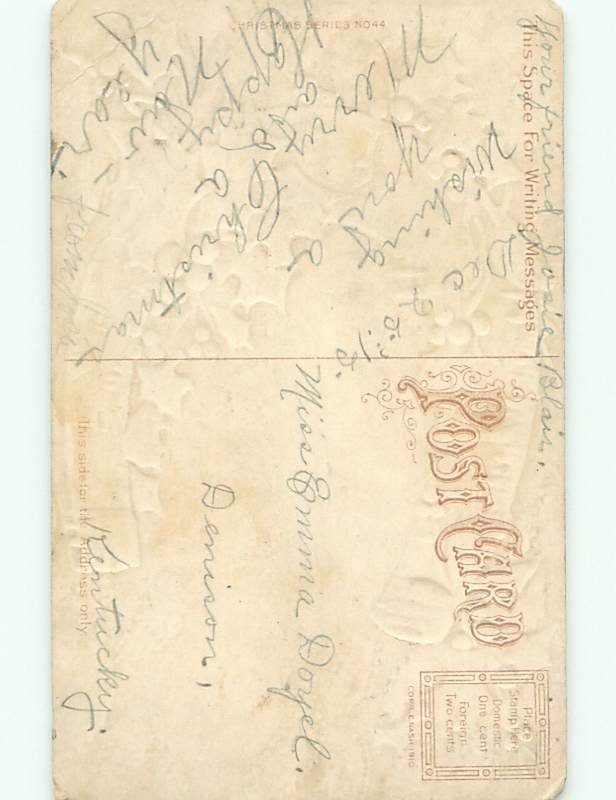 Your friend Josie Blair.
This Space For Writing Messages
Dec 25. '13.
Wishing
you a
Merry
and Christmas
Happy a
New
Year.
from
CHRISTMAS SERIES NO 44
POST CARD
Place
Stamp Here
Domestic
One cent
Foreign
Two cents
COPR. E. NASH 1910
Miss Emma Doyel.
Denison,
Kentucky.
This side for the Address only